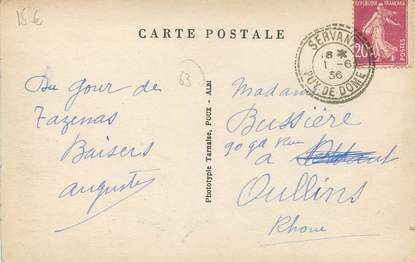 15-6
CARTE POSTALE
REPUBLIQUE FRANÇAISE
20
POSTES
SERVANT
18 *
1 -6
36
PUY DE DOME
63
Du gour de
Tazenas
Baisers
Auguste
Phototypie Tarnaise, POUX - ALBI
Madame
Bussière
90 gde Rue
a
Oullins
Rhone